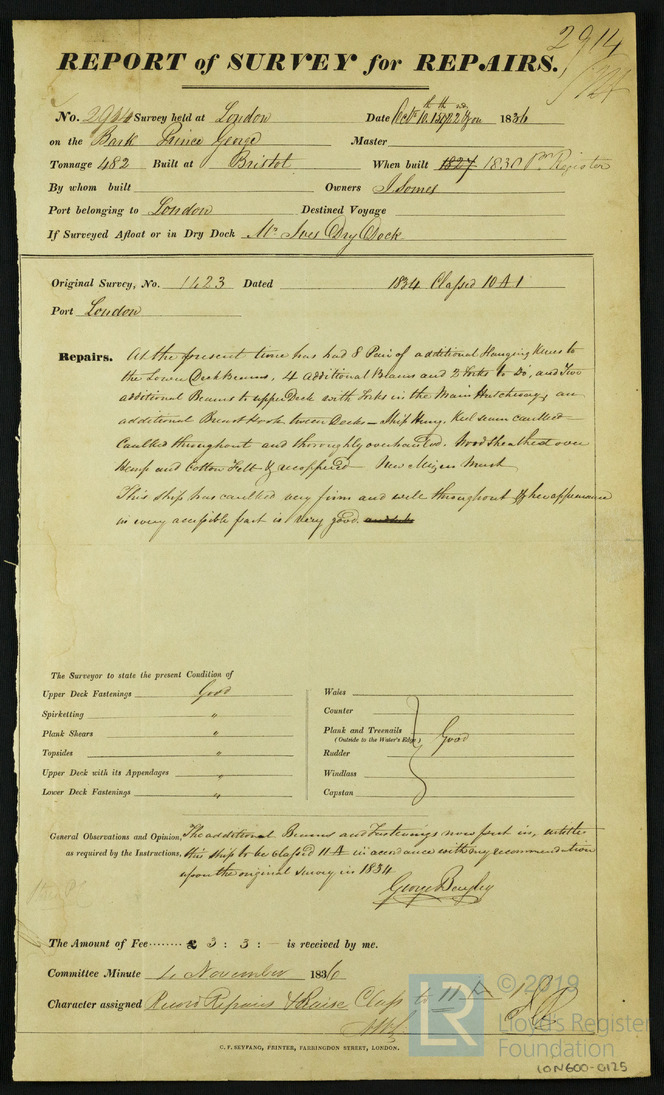 2914
REPORT of SURVEY for REPAIRS.
No. 2914 Survey held at London Date Octr 10th 14th 22nd 1836
on the Bark Prince George Master
Tonnage 482 Built at Bristol When built 1827 1830 pr Register
By whom built Owners J Somes
Port belonging to London Destined Voyage
If Surveyed Afloat or in Dry Dock Mr Ives Dry Dock
Original Survey, No. 1423 Dated 1834 Classed 10 A 1
Port London
Repairs. At the present time has had 8 Pair of additional Hanging Knees to
the Lower Deck Beams, 4 additional Beams and 2 Forks to Do, and Two
additional Beams to upper Deck with Forks in the Main Hutchway, an
additional Breast Hook tween Decks – Ship Hung. Keel seam caulked
Caulked throughout and thoroughly overhauled. Wood Sheathed over
Hemp and Cotton Felt & recoppered – New Mizen Mast
This Ship has caulked very firm and well throughout & her appearance
in every accessible part is very good.
The Surveyor to state the present Condition of
Upper Deck Fastenings Good
Spirketting "
Plank Shears "
Topsides "
Upper Deck with its Appendages "
Lower Deck Fastenings "
Wales
Counter
Plank and Treenails
(Outside to the Water's Edge) Good
Rudder
Windlass
Capstan
General Observations and Opinion, The additional Beams and Fastenings now put in, entitles
as required by the Instructions, this Ship to be classed 11 A in accordance with my recommendation
upon the original survey in 1834
George Bayley
The Amount of Fee ........ £ 3 : 3 : – is received by me.
Committee Minute 4 November 1836
Character assigned Record Repairs & Raise Class to 11 A
C. F. SEYFANG, PRINTER, FARRINGDON STREET, LONDON.
LR
© 2019
Lloyd's Register
Foundation
LON600-0125